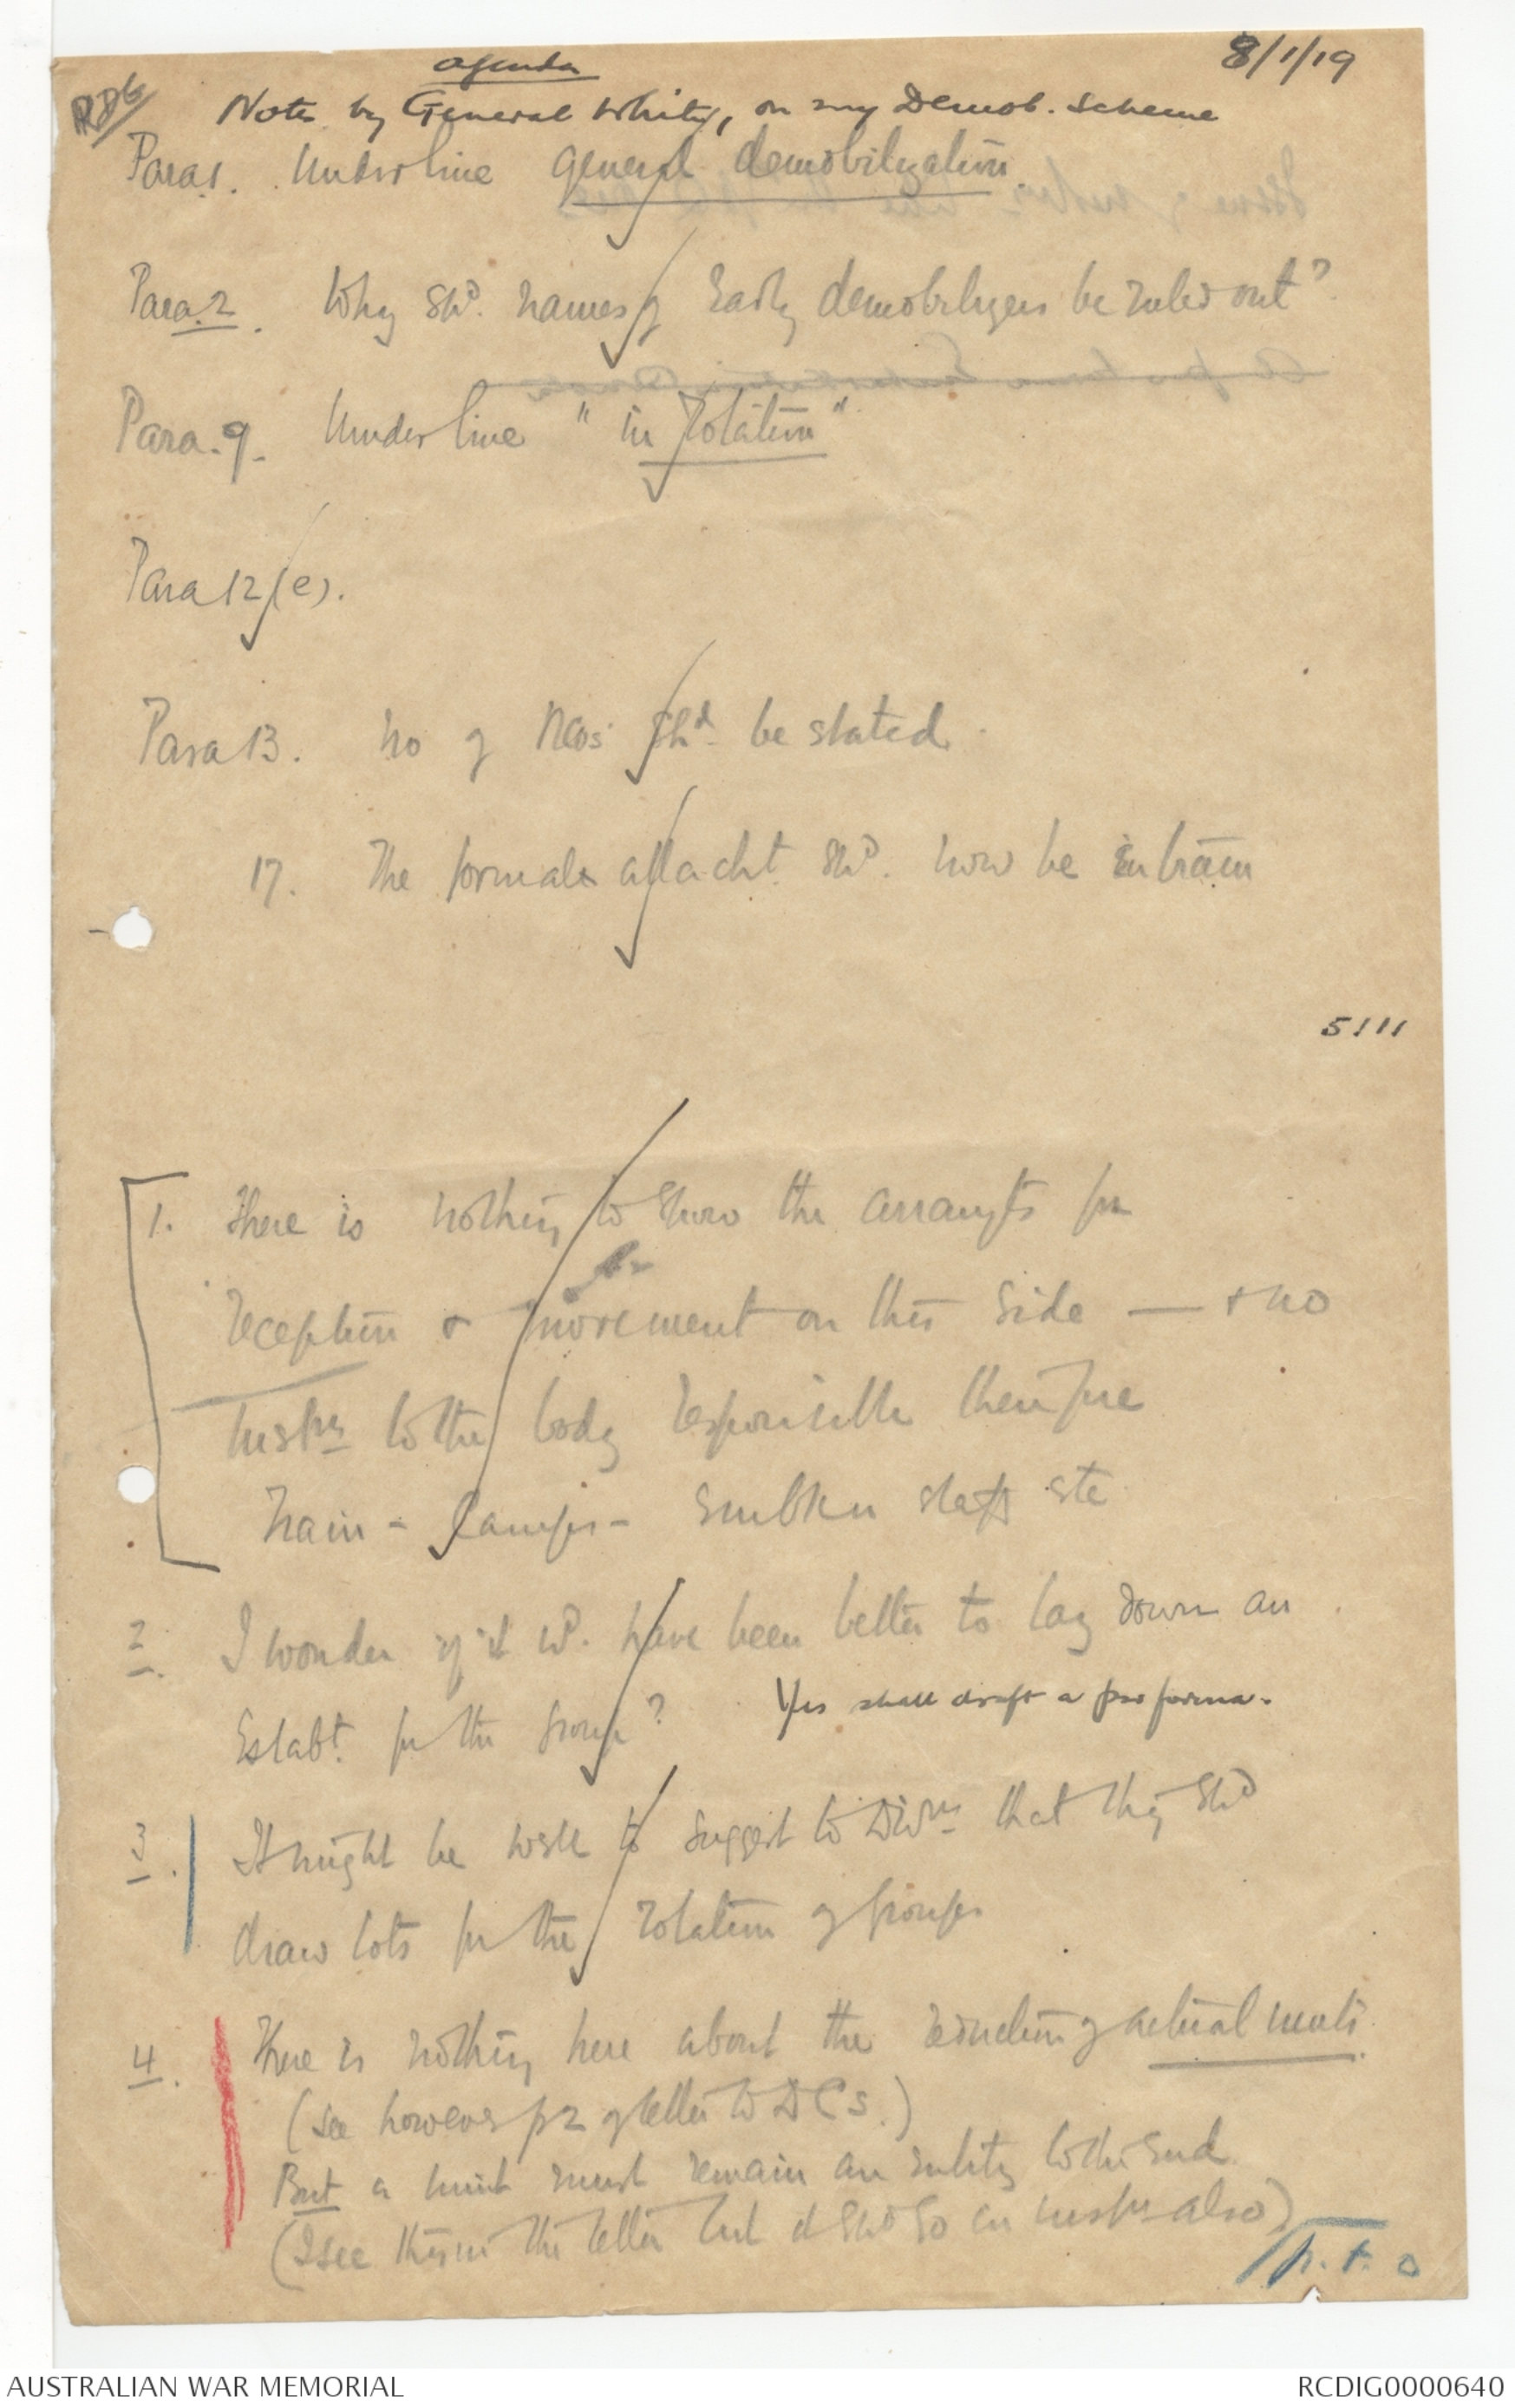 Agenda
8/1/19
Notes by General White, on my Demob. Scheme
Para 1. Underline general demobilization.
Para 2. Why shd. names of early demobilizers be ruled out?
Para. 9. Underline "in rotation"
Para 12 (e).
Para 13. No of shd. be stated.
17. The formale attacht. shd. now be
5111
1. There is nothing to show the arrangts for
reception & movement on this side — & no
instns to the body responsible therefore
Train - Camps - Embkn staff etc
2. I wonder if it wd. have been better to lay down an
Establt. for the Group? Yes shall draft a pro forma.
3. It might be well to suggest to Divns that they shd
draw lots for the rotation of Groups
4. There is nothing here about the reduction of actual units.
(see however p 2 of letter to DCs.)
But a unit must remain an entity to the end.
(I see this in the letter but it shd go in instns also)
P.T.O
AUSTRALIAN WAR MEMORIAL
RCDIG0000640